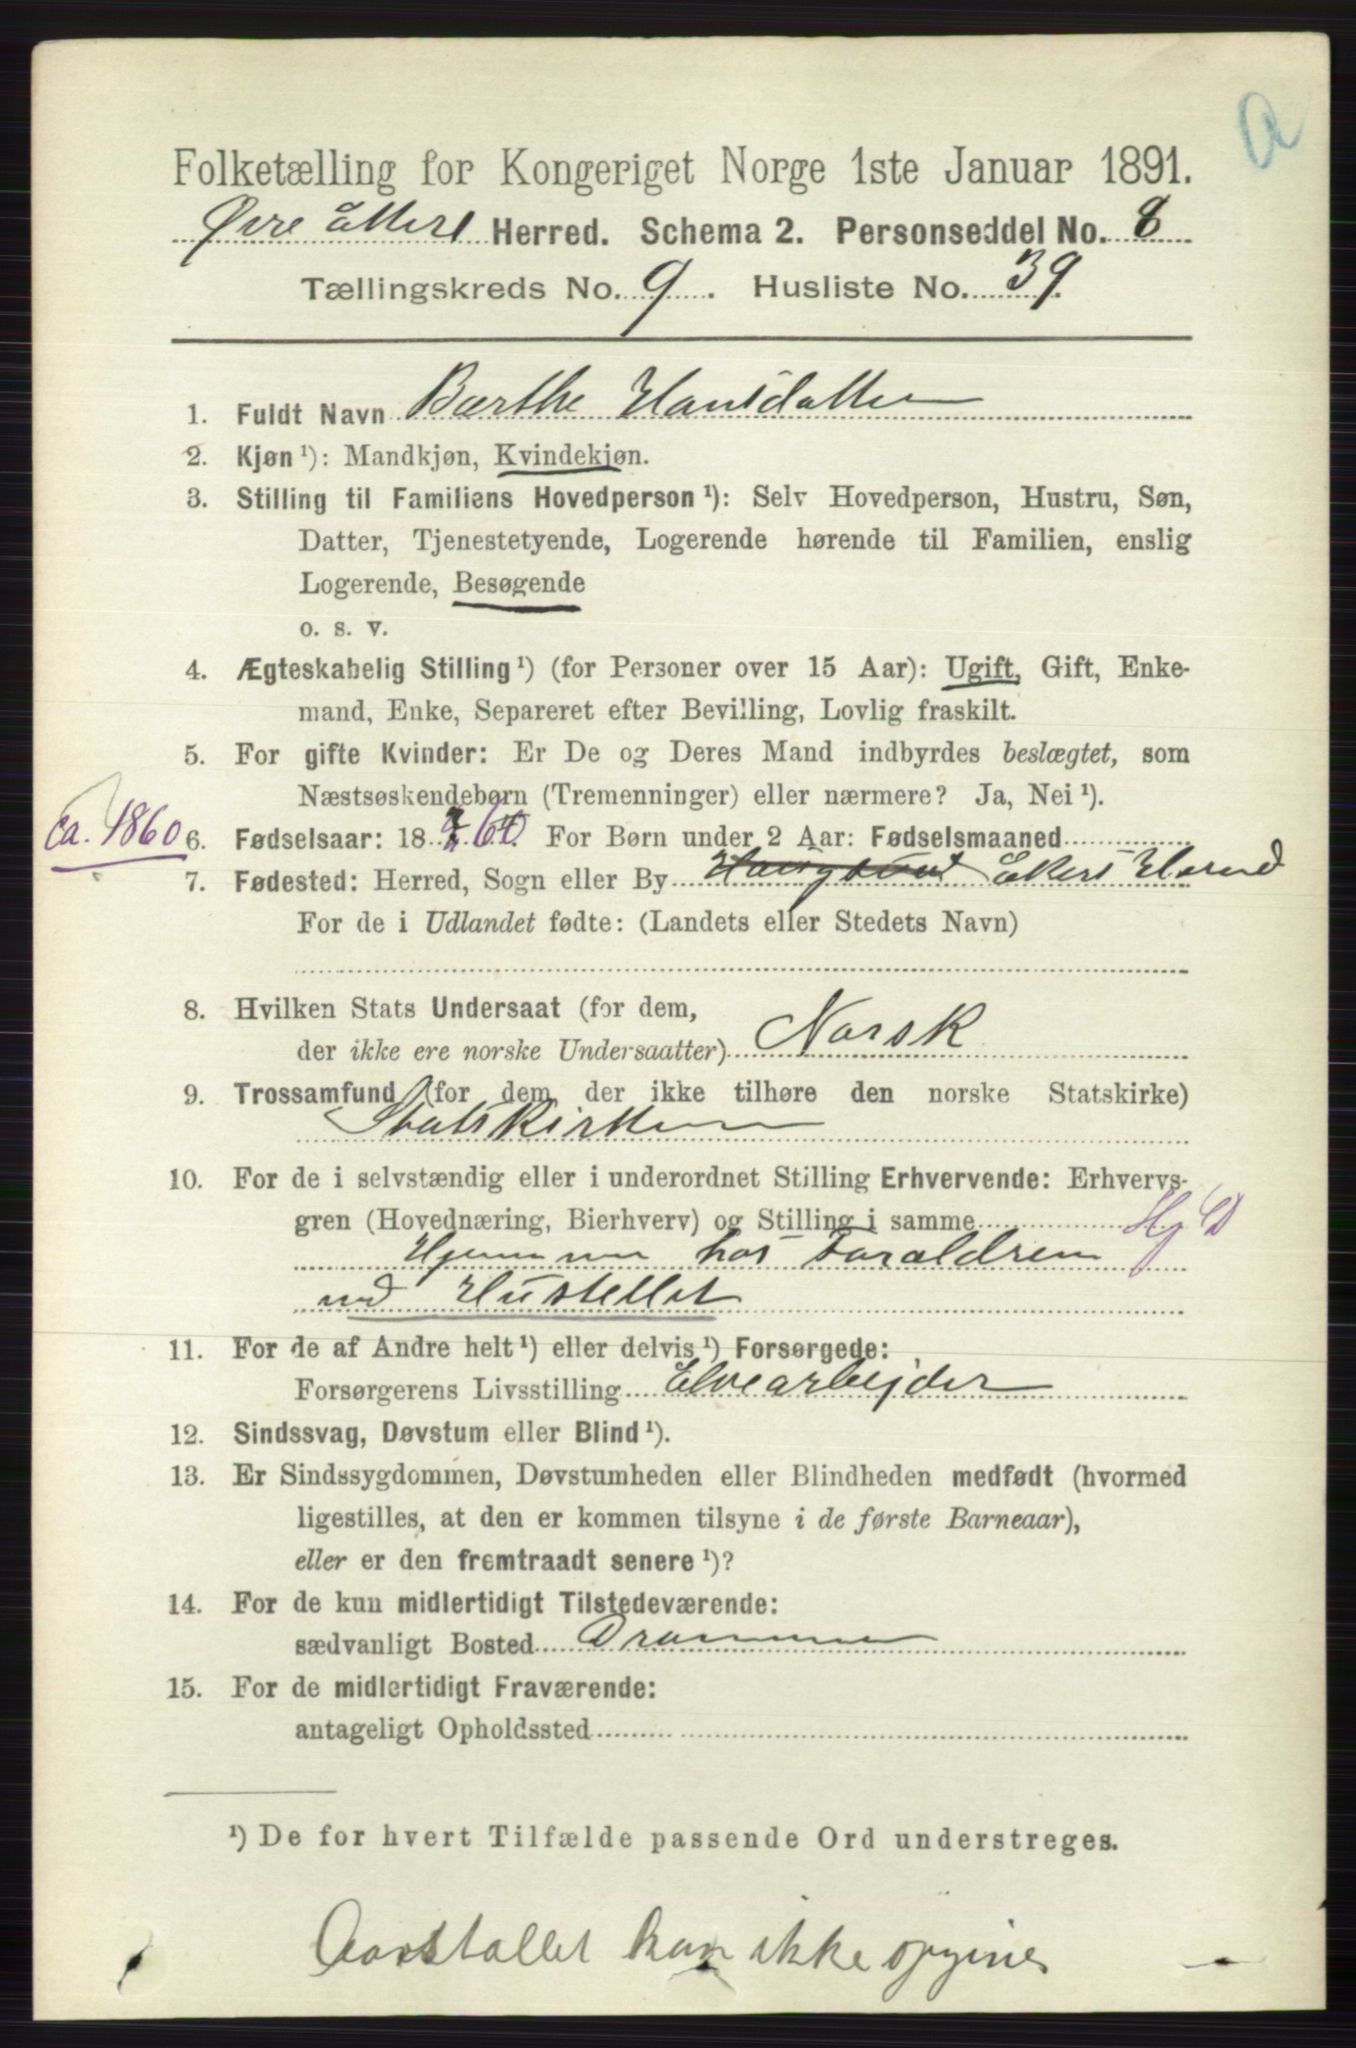 a
Folketælling for Kongeriget Norge 1ste Januar 1891.
Øvre Ekers Herred. Schema 2. Personseddel No. 8
Tællingskreds No. 9. Husliste No. 39.
1. Fuldt Navn Barthe Hansdatter
2. Kjøn ¹): Mandkjøn, Kvindekjøn.
3. Stilling til Familiens Hovedperson ¹): Selv Hovedperson, Hustru, Søn,
Datter, Tjenestetyende, Logerende hørende til Familien, enslig
Logerende, Besøgende
o. s. v.
4. Ægteskabelig Stilling ¹) (for Personer over 15 Aar): Ugift, Gift, Enke-
mand, Enke, Separeret efter Bevilling, Lovlig fraskilt.
5. For gifte Kvinder: Er De og Deres Mand indbyrdes beslægtet, som
Næstsøskendebørn (Tremenninger) eller nærmere? Ja, Nei ¹).
ca. 1860 6. Fødselsaar: 18 60 For Børn under 2 Aar: Fødselsmaaned
7. Fødested: Herred, Sogn eller By Ekers Herred
For de i Udlandet fødte: (Landets eller Stedets Navn)
8. Hvilken Stats Undersaat (for dem,
der ikke ere norske Undersaatter) Norsk
9. Trossamfund (for dem der ikke tilhøre den norske Statskirke)
Statskirken
10. For de i selvstændig eller i underordnet Stilling Erhvervende: Erhvervs-
gren (Hovednæring, Bierhverv) og Stilling i samme
Hjemme hos Foraldren
ved Husstellet
11. For de af Andre helt ¹) eller delvis ¹) Forsørgede:
Forsørgerens Livsstilling Elvearbejder
12. Sindssvag, Døvstum eller Blind ¹).
13. Er Sindssygdommen, Døvstumheden eller Blindheden medfødt (hvormed
ligestilles, at den er kommen tilsyne i de første Barneaar),
eller er den fremtraadt senere ¹)?
14. For de kun midlertidigt Tilstedeværende:
sædvanligt Bosted Drammen
15. For de midlertidigt Fraværende:
antageligt Opholdssted
¹) De for hvert Tilfælde passende Ord understreges.
Aarstallet kan ikke opgives